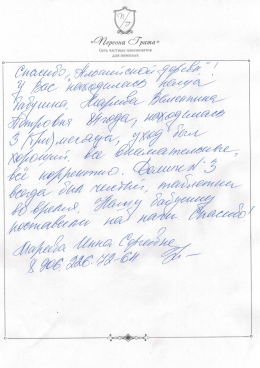 «Персона Грата»
Сеть частных пансионатов
для пожилых
Спасибо, "Алтайской деревне"!
У Вас находилась наша
бабушка, Марива Валентина
Петровна, находилась
3 (три) месяца, уход был
хороший, все внимательные,
всё корректно. Домик №3
всегда был чистый, таблетки
во время. Нашу бабушку
поставили на ноги. Спасибо!
Инна Сергеевна
8 906 226-42-64